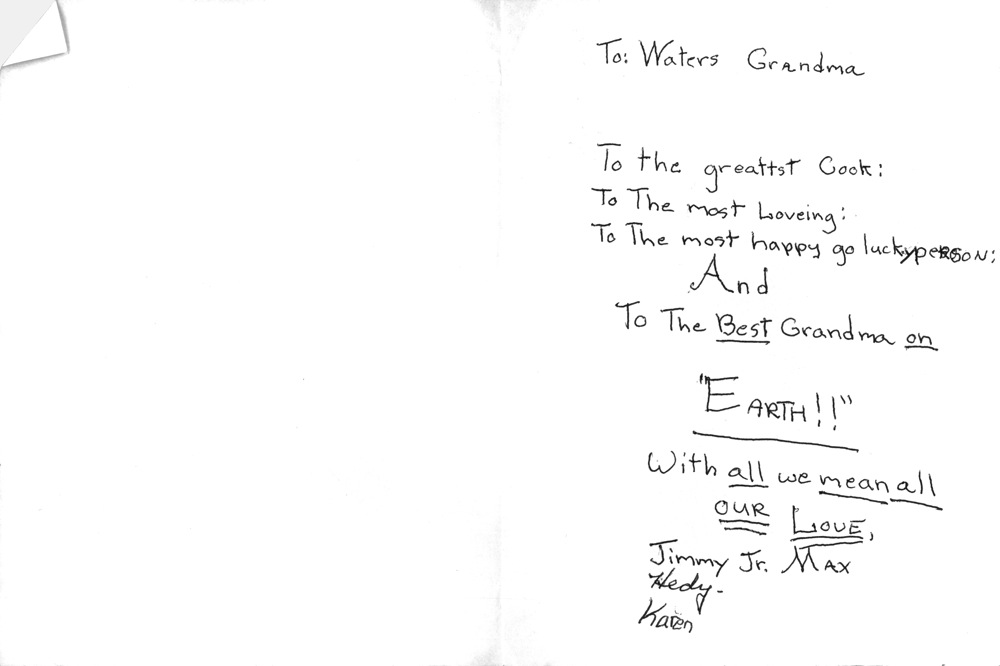 To: Waters Grandma
To the greattst Cook:
To The most Loveing:
To The most happy go luckyperson:
And
To The Best Grandma on
"EARTH!!"
With all we mean all
OUR LOVE,
Jimmy Jr. MAX
Hedy.
Karen